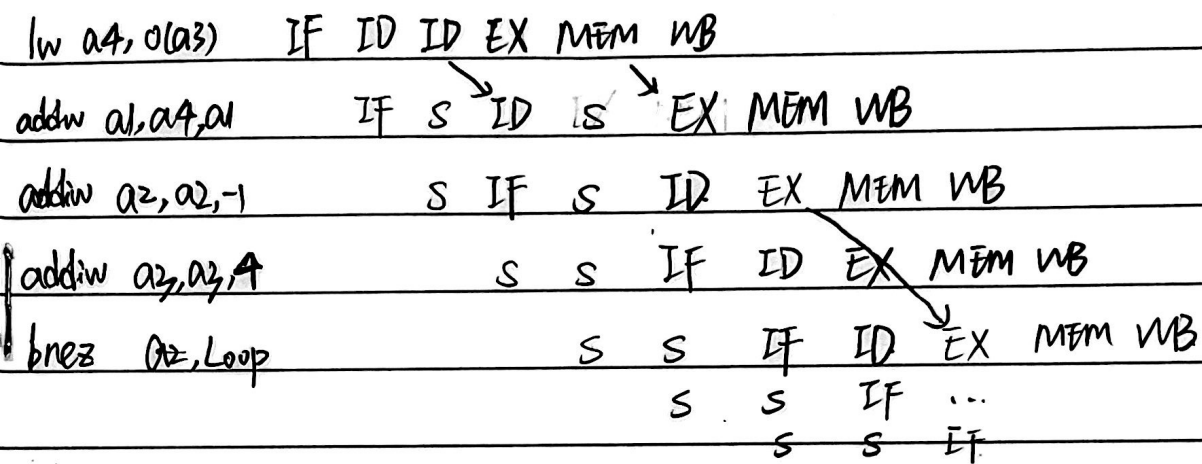 lw a4, 0(a3) IF ID ID EX MEM WB
addw a1,a4,a1 IF S ID S EX MEM WB
addiw a2,a2,-1 S IF S ID EX MEM WB
addiw a3,a3,4 S S IF ID EX MEM WB
bnez a2,Loop S S IF ID EX MEM WB
S S IF ...
S S IF